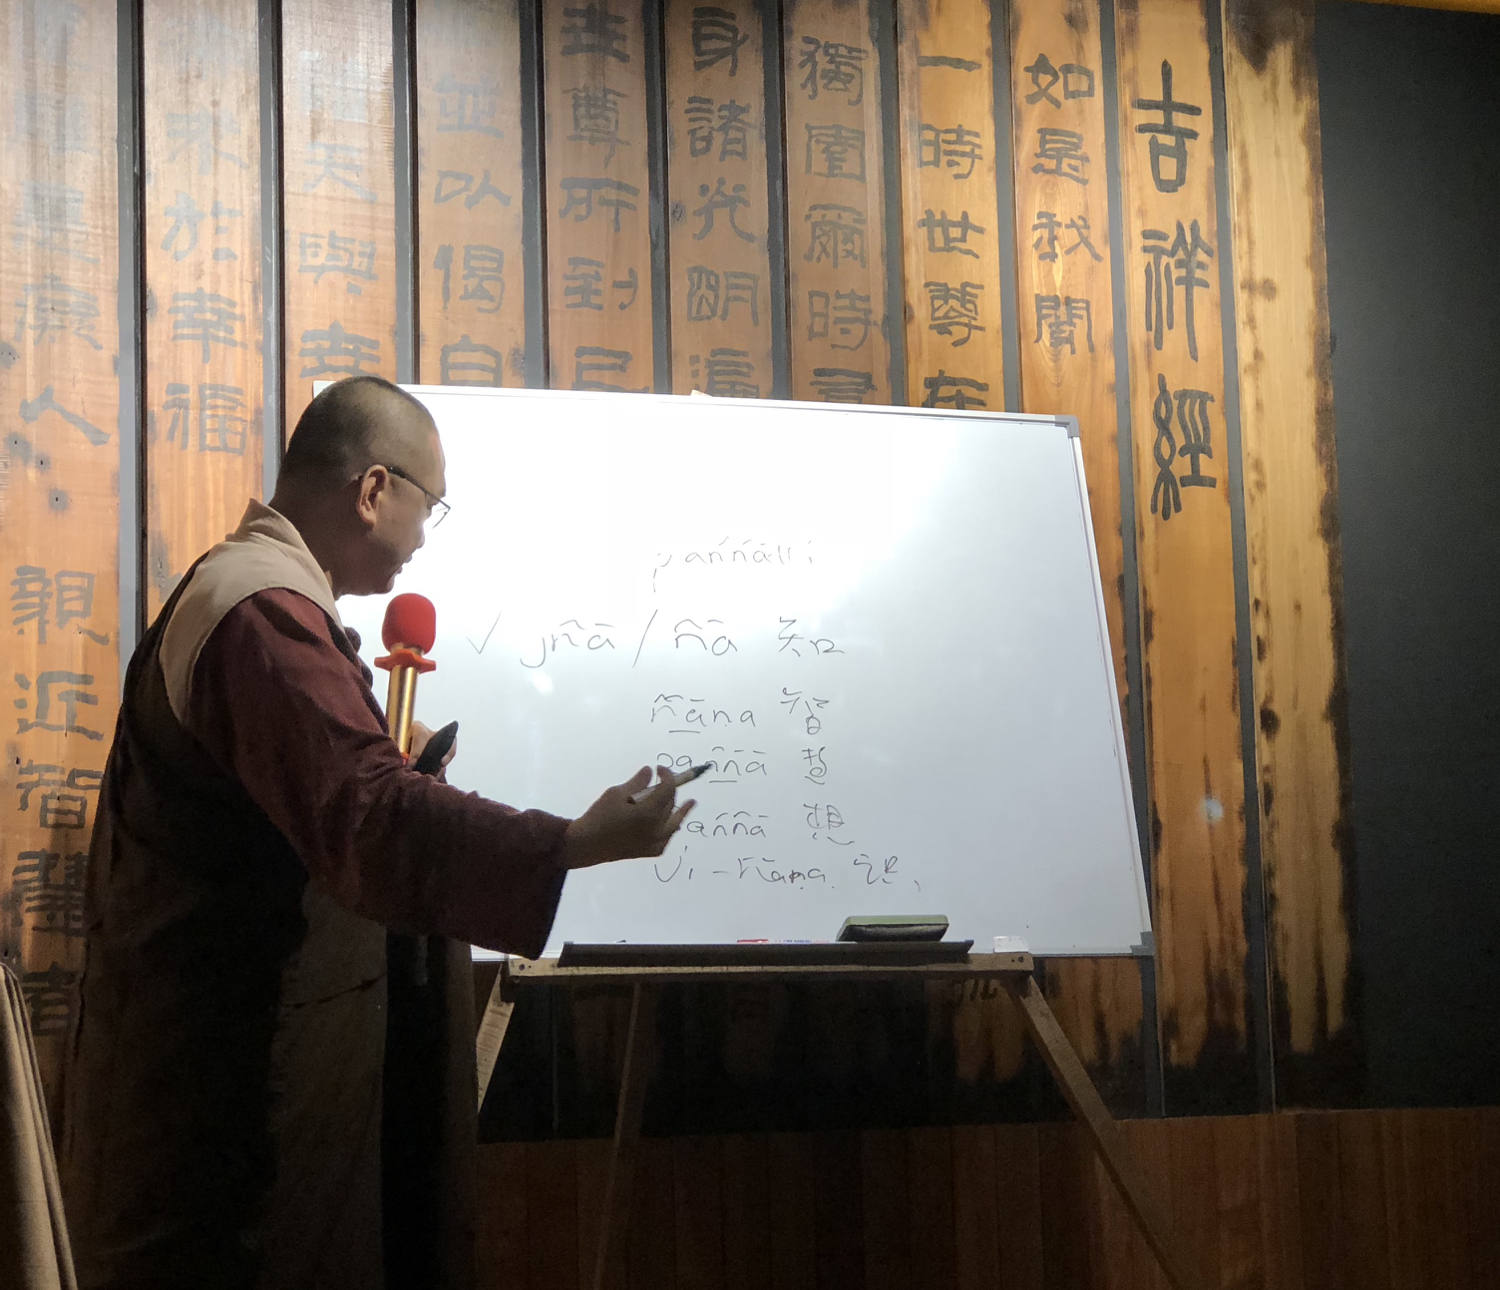 吉祥經
如是我聞
一時世尊在
獨園爾時尋
身諸光明遍
世尊所到已
並以偈白
天與幸
求於幸福
癡人
親近智慧者
paññatti
√ jñā / ñā 知
ñāṇa 智
paññā 慧
aññā 想
Vi-ñāṇa 識